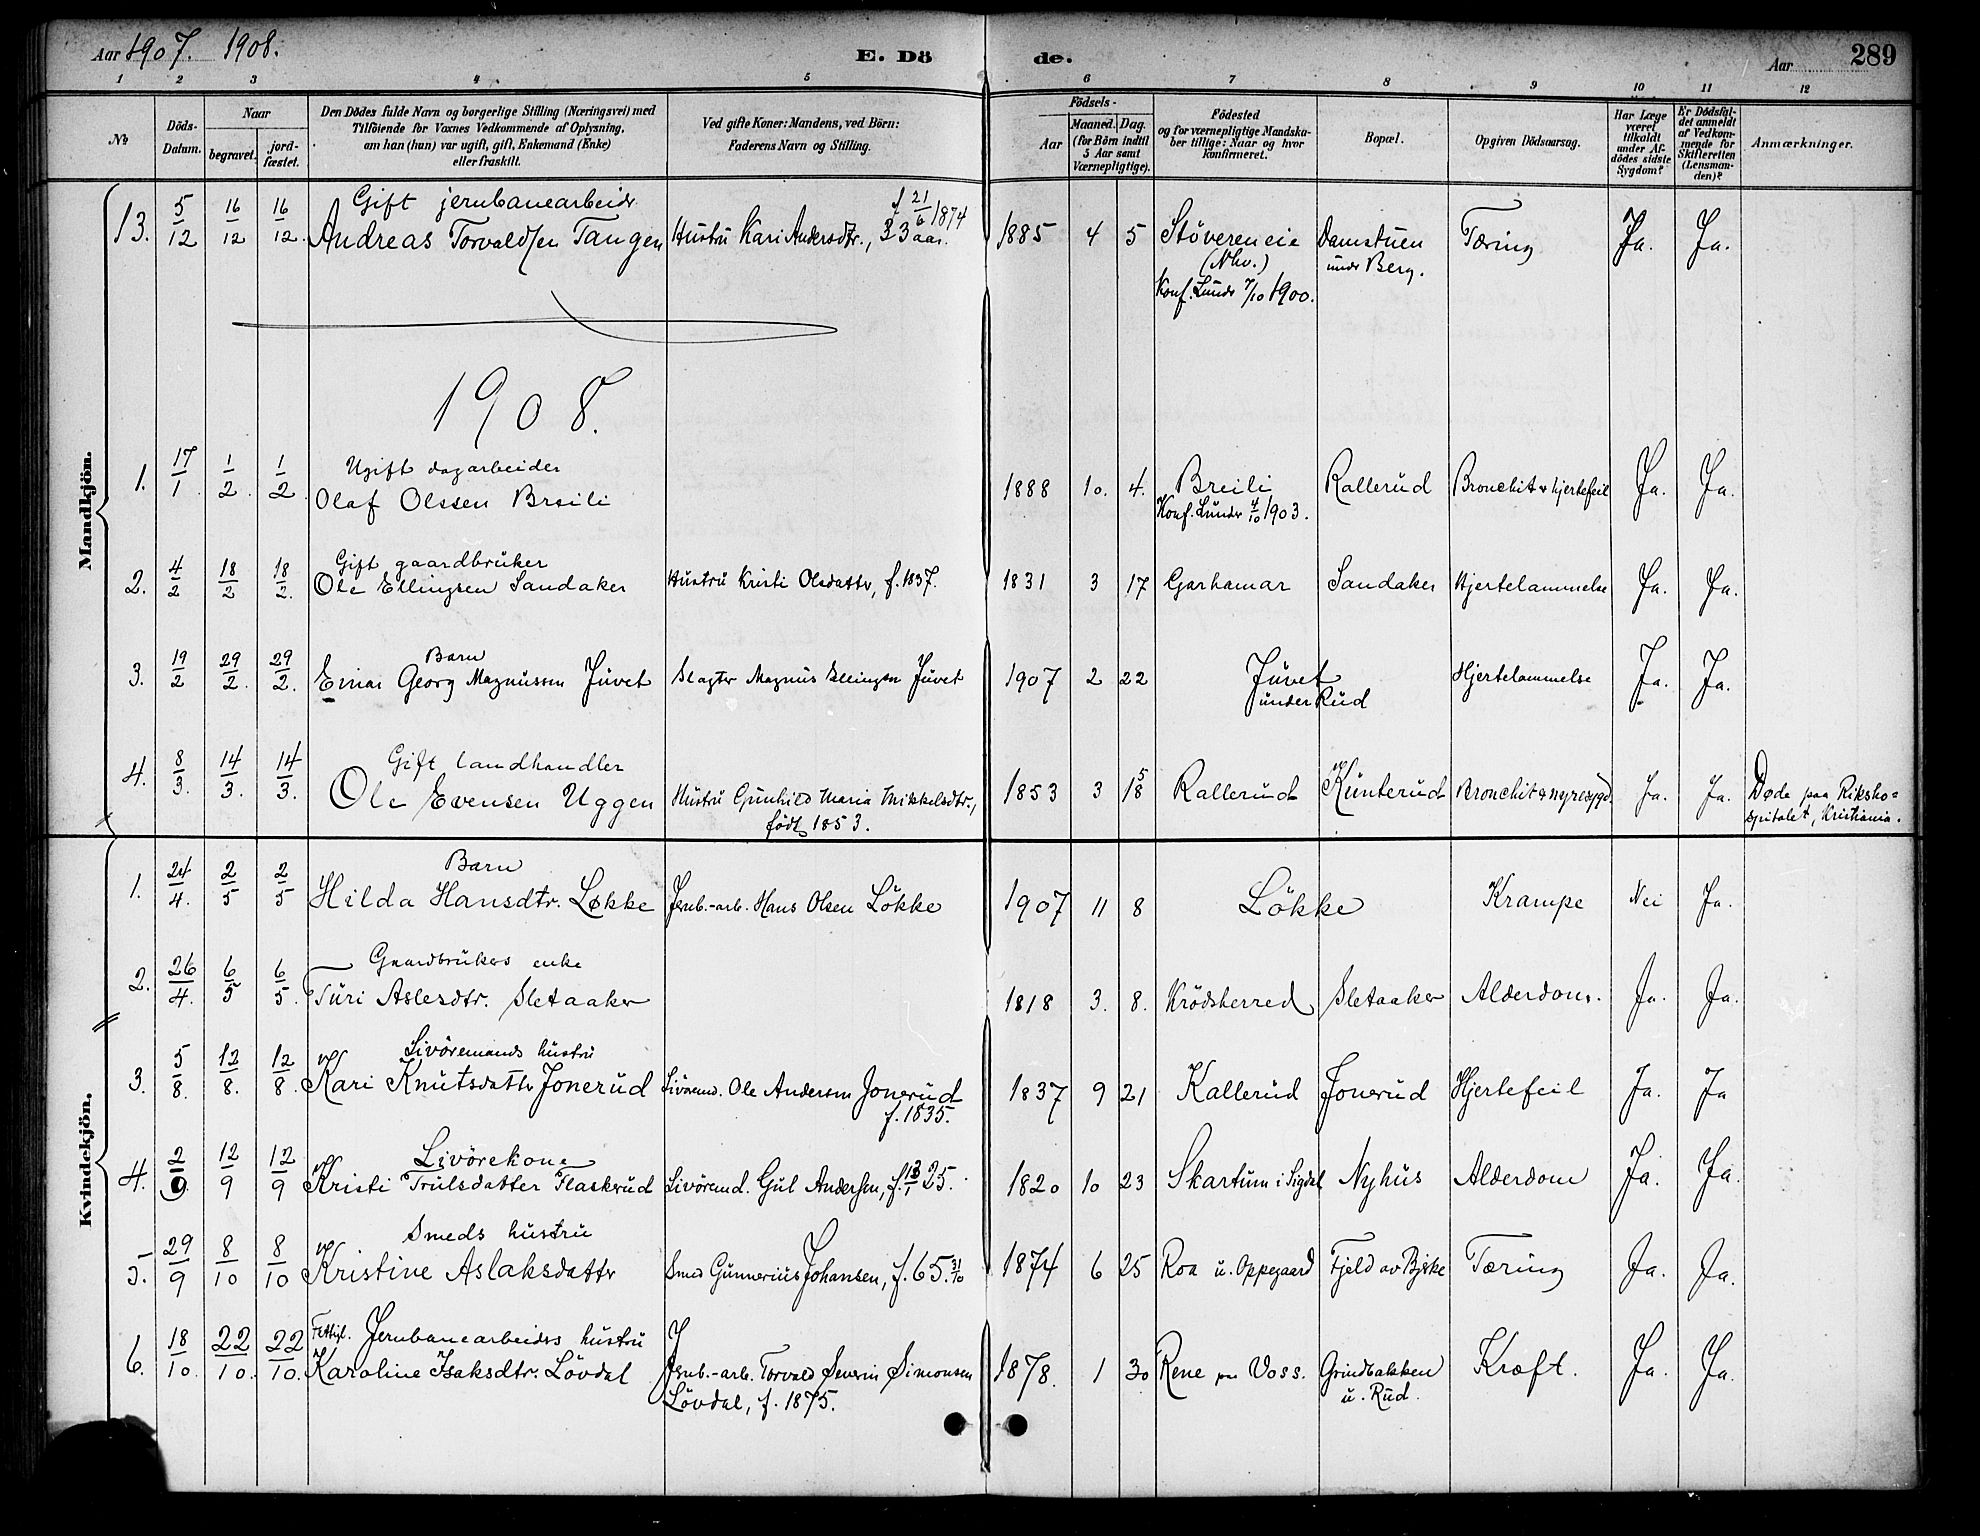 Aar 1907. 1908. E. Döde. Aar 289
1 2 3 4 5 6 7 8 9 10 11 12
No. Döds-Datum. Naar begravet. jordfæstet. Den Dödes fulde Navn og borgerlige Stilling (Næringsvei) med Tilföiende for Voxnes Vedkommende af Oplysning, om han (hun) var ugift, gift, Enkemand (Enke) eller fraskilt. Ved gifte Koner: Mandens, ved Börn: Faderens Navn og Stilling. Födsels- Aar Maaned. Dag. (for Börn indtil 5 Aar samt Værnepligtige). Födested og for værnepligtige Mandskaber tillige: Naar og hvor konfirmeret. Bopæl. Opgiven Dödsaarsag. Har Læge været tilkaldt under Afdödes sidste Sygdom? Er Dödsfaldet anmeldt af Vedkommende for Skifteretten (Lensmanden)? Anmærkninger.
Mandkjön.
Gift jernbanearbeidr f 21/6 1874
13. 5/12 16/12 16/12. Andreas Torvaldsen Tangen Hustru Kari Andersdtr., 33 aar. 1885 4 5 Stöveren eie Damstuen Tæring Ja. Ja.
(Nhv.) undr Berg.
Konf. Lundr 7/10 1900.
1908.
Ugift dagarbeider
1. 17/1. 1/2. 1/2. Olaf Olssen Breili 1888 10. 4. Breili Rallerud Bronchit & hjertefeil Ja. Ja.
Konf. Lundr 4/10 1903.
Gift gaardbruker
2. 4/2 18/2 18/2. Ole Ellingsen Sandaker Hustru Kristi Olsdattr, f. 1837. 1831 3 17 Garhamar Sandaker Hjertelammelse Ja. Ja.
Barn
3. 19/2 29/2. 29/2. Einar Georg Magnussen Juvet Slagter Magnus Ellingsen Juvet 1907 2 22 Juvet Hjertelammelse Ja. Ja.
under Rud
Gift landhandler
4. 8/3. 14/3. 14/3. Ole Evensen Uggen Hustru Gunhild Maria Mikkelsdtr., 1853 3 Rallerud Kunterud Bronchit & nyresygd. Ja. Ja. Døde paa Riksho=
født 1853. spitalet, Kristiania.
Kvindekjön.
Barn
1. 24/4. 2/5 2/5 Hilda Hansdtr. Løkke Jernb.-arb. Hans Olsen Lökke 1907 11 8 Lökke Krampe Nei Ja.
Gaardbrukers enke
2. 26/4. 6/5 6/5. Turi Aslesdtr. Sletaaker 1818 3. 8. Krödsherred Sletaaker Alderdom. Ja. Ja.
Livöremands hustru
3. 5/8. 12/8. 12/8. Kari Knutsdattr Jonerud Livöremd. Ole Andersen Jonerud 1837 9 21 Kallerud Jonerud Hjertefeil Ja. Ja
f. 1835.
Livörekone
4. 2/9. 12/9 12/9 Kristi Trulsdatter Flaskerud Livöremd. Gul Andersen, f. 13/1 25. 1820 10 23 Skartum i Sigdal Nyhus Alderdom Ja. Ja.
Smeds hustru
5. 29/9 8/10 8/10 Kristine Aslaksdattr Smed Gunnerius Johansen, f. 65. 31/10 1874 6 25 Roa u. Oppegaard Fjeld av Bjske Tæring Ja. Ja.
Fattigl. Jernbanearbeidrs hustru
6. 18/10. 22/10. 22/10. Karoline Isaksdtr. Lövdal Jernb.-arb. Torvald Severin Simonsen 1878. 1 30 Rene paa Voss. Grindbakken Kræft. Ja. Ja.
Lövdal, f. 1875. u. Rud.